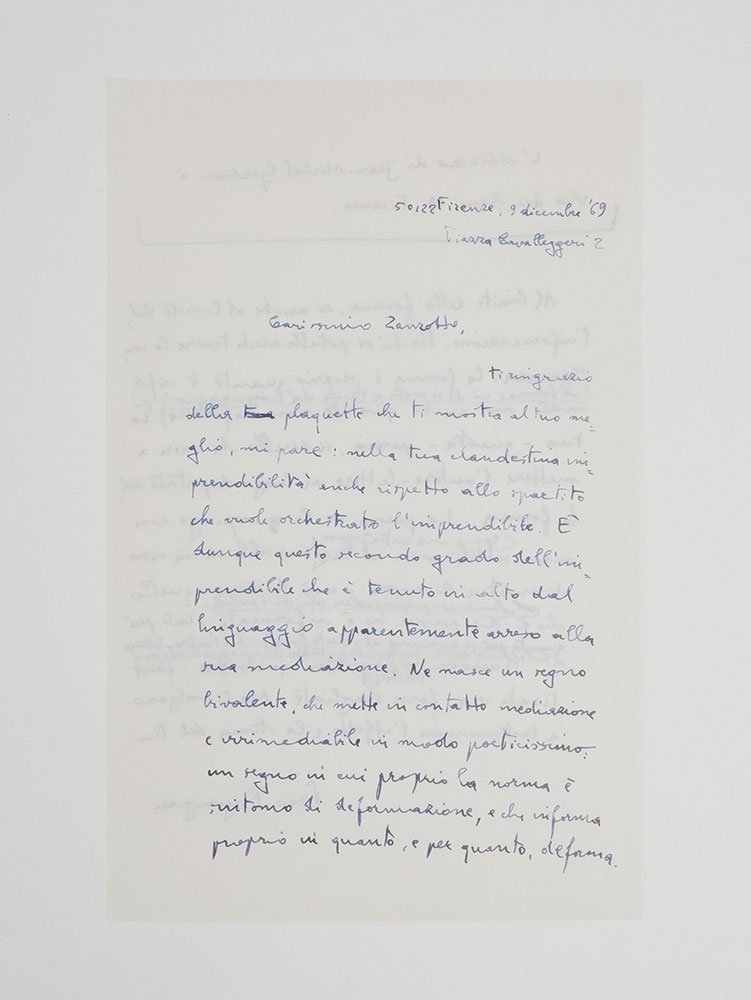 50122 Firenze, 9 dicembre '69
Piazza Cavalleggeri 2
Carissimo Zanzotto,
ti ringrazio
della plaquette che ti mostra al tuo me=
glio, mi pare: nella tua clandestina im=
prendibilità anche rispetto allo spartito
che vuole orchestrato l'imprendibile. È
dunque questo secondo grado dell'im=
prendibile che è tenuto in alto dal
linguaggio apparentemente arreso alla
sua mediazione. Ne nasce un segno
bivalente, che mette in contatto mediazione
e irrimediabile in modo poeticissimo:
un segno in cui proprio la norma è
sintomo di deformazione, e che informa
proprio in quanto, e per quanto, deforma.